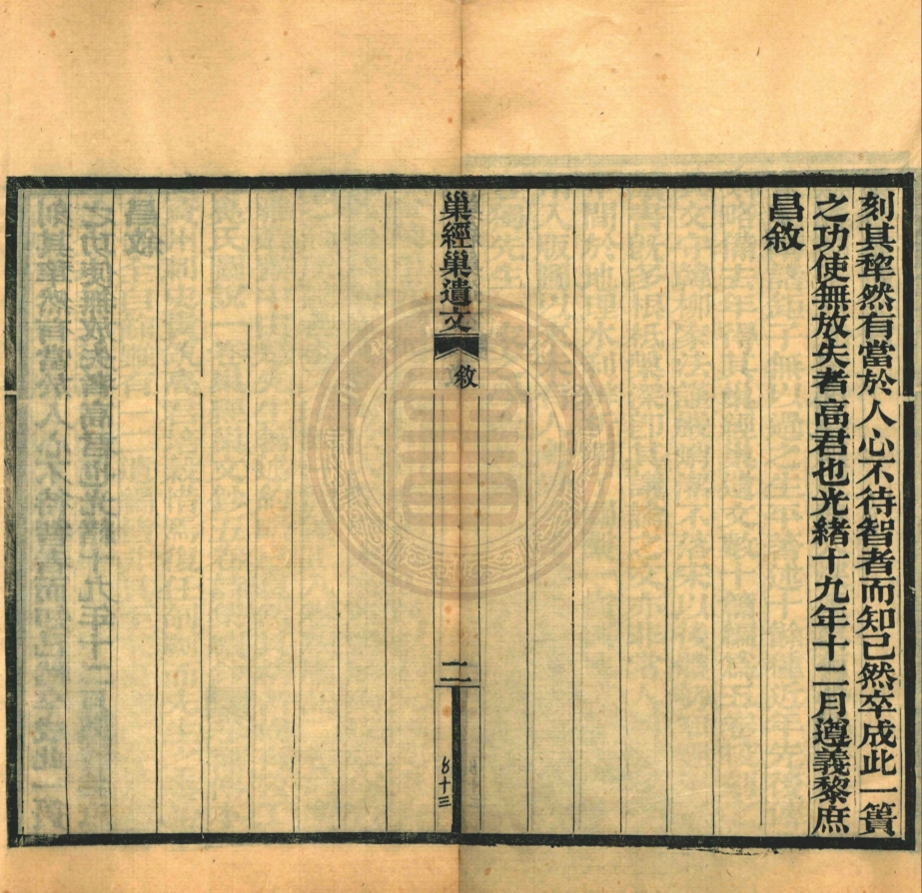 刻其犂然有當於人心不待智者而知已然卒成此一簣
之功使無放失者高君也光緒十九年十二月遵義黎庶
昌敘
巢經巢遺文
敘
二